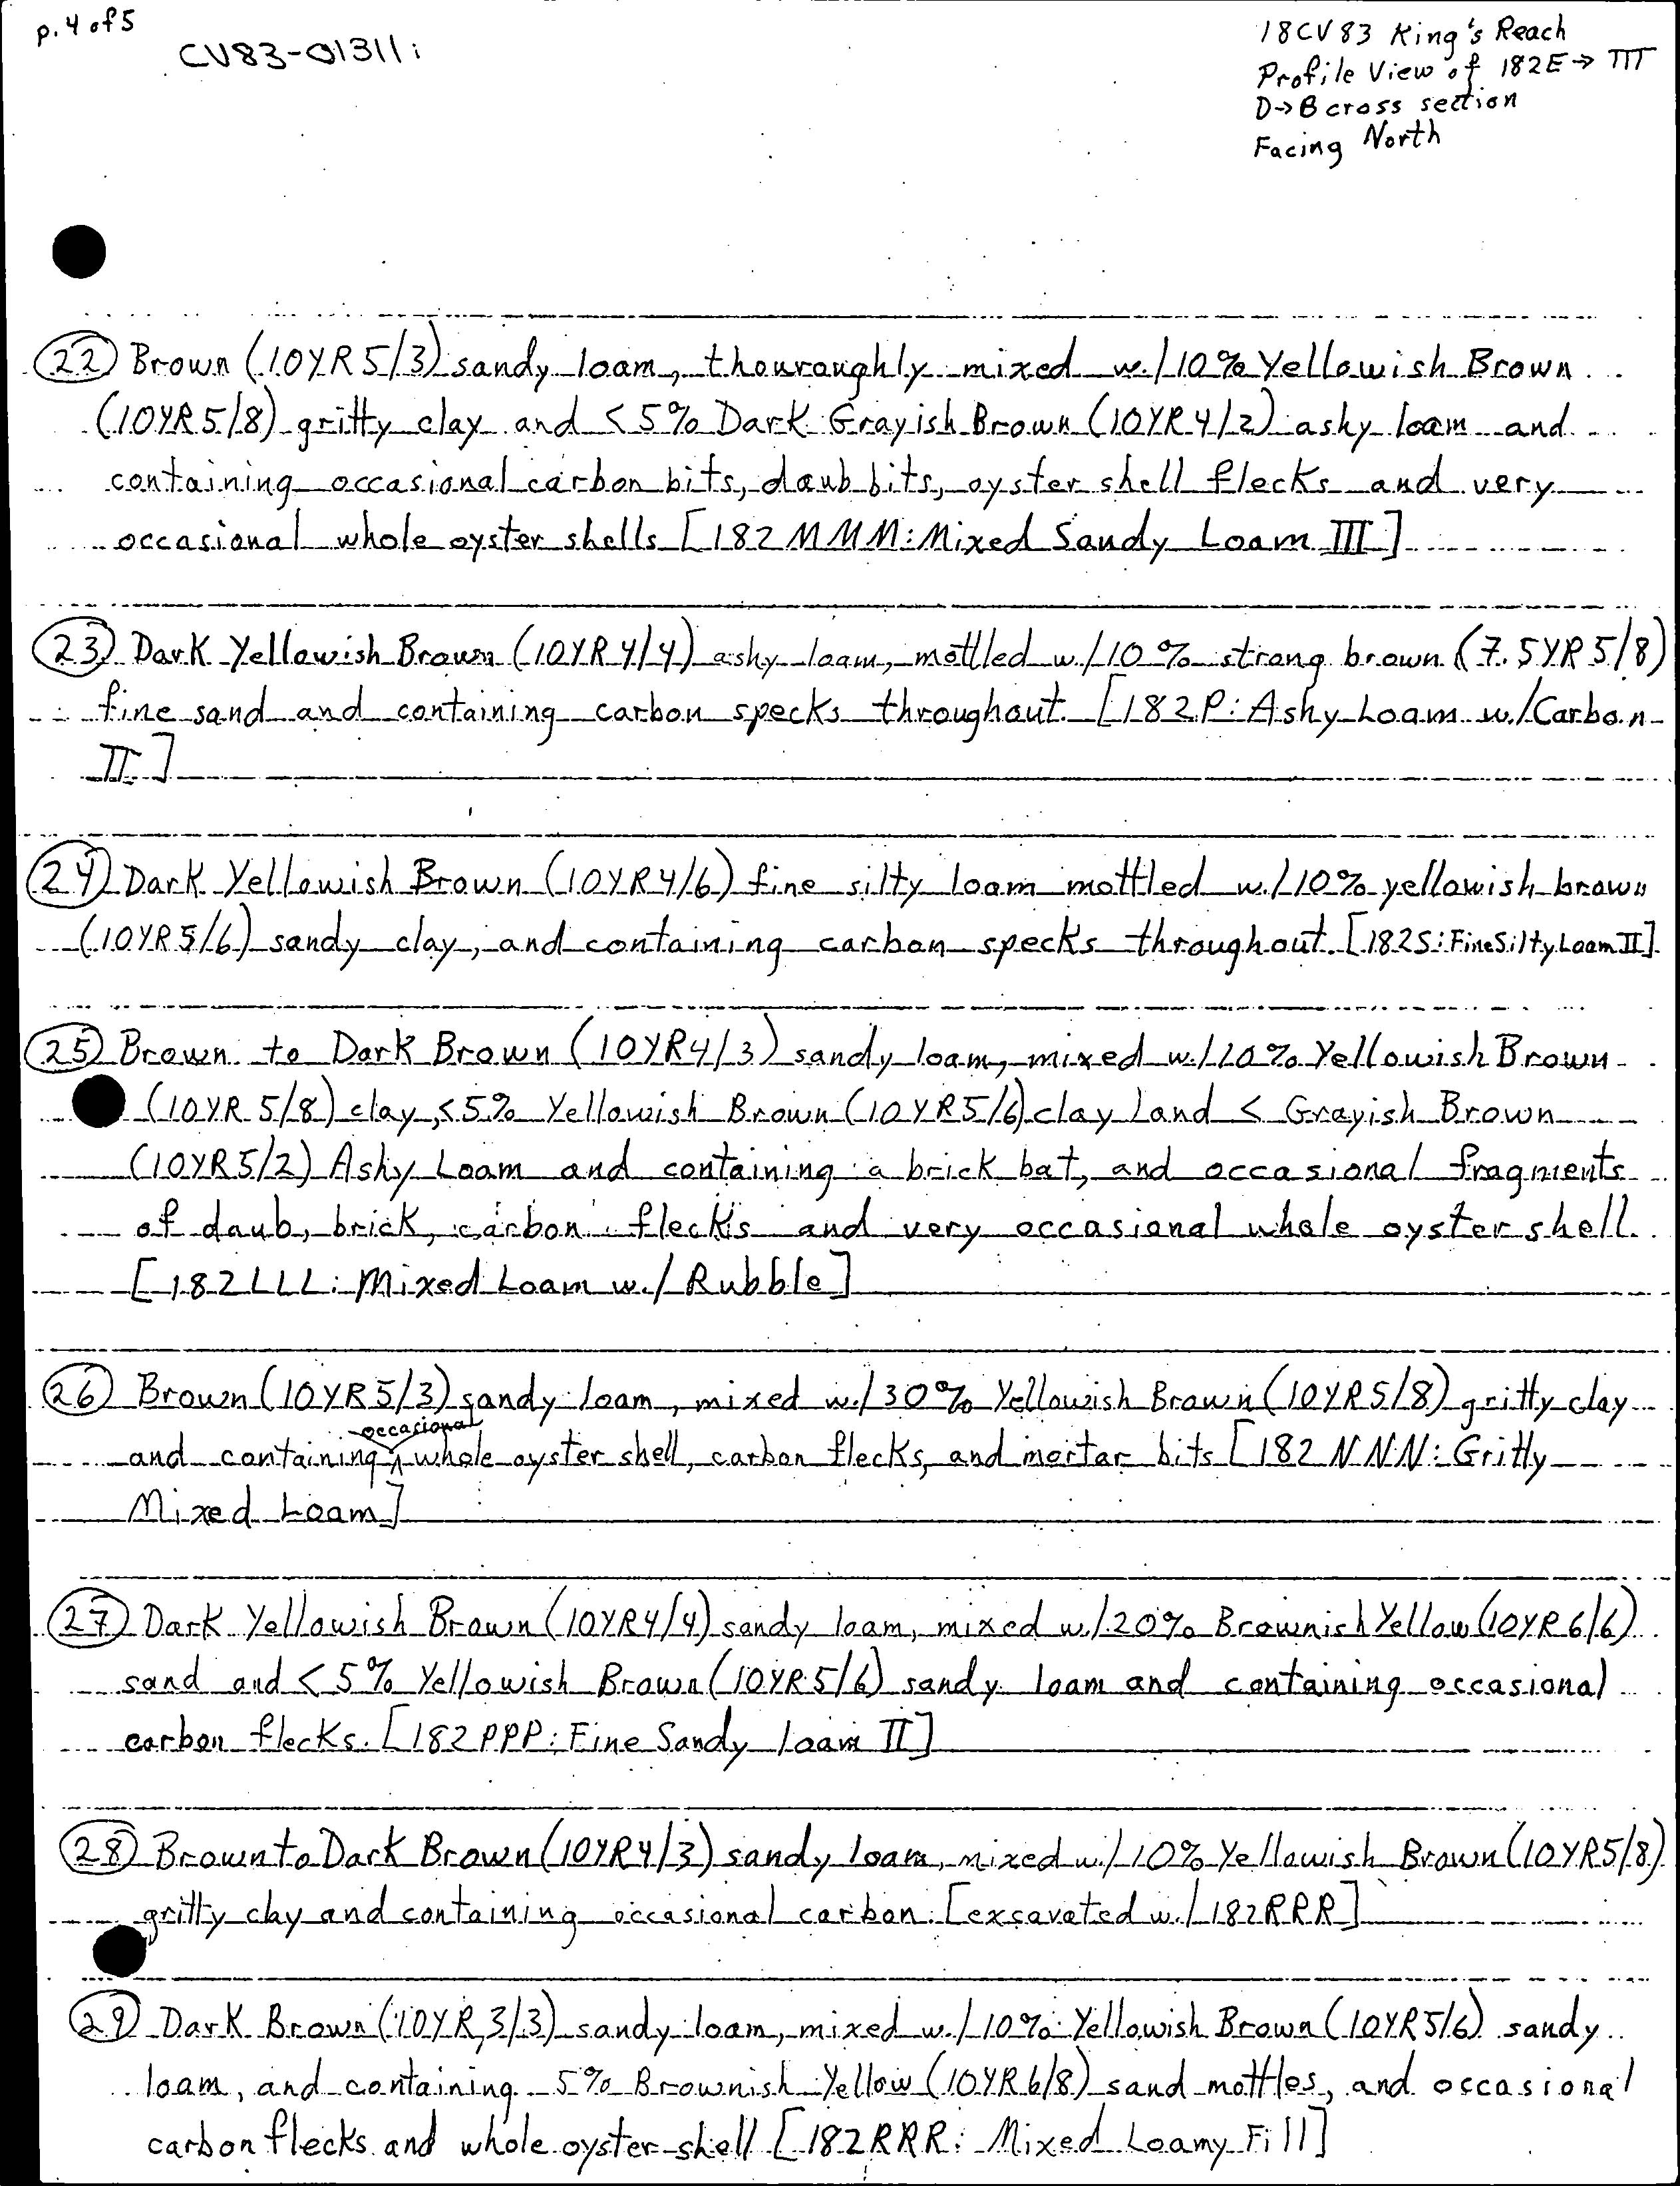 p. 4 of 5
CV83-01311i
18CV83 King's Reach
Profile View of 182E→TTT
D→B cross section
Facing North
22 Brown (10YR5/3) sandy loam, thouroughly mixed w./10% Yellowish Brown
(10YR5/8) gritty clay and <5% Dark Grayish Brown (10YR4/2) ashy loam and
containing occasional carbon bits, daub bits, oyster shell flecks and very
occasional whole oyster shells [182 MMM: Mixed Sandy Loam III]
23 Dark Yellowish Brown (10YR4/4) ashy loam, mottled w./10% strong brown (7.5YR5/8)
fine sand and containing carbon specks throughout. [182P: Ashy Loam w./Carbon
II]
24 Dark Yellowish Brown (10YR4/6) fine silty loam mottled w./10% yellowish brown
(10YR5/6) sandy clay, and containing carbon specks throughout. [182S: Fine Silty Loam II]
25 Brown to Dark Brown (10YR4/3) sandy loam, mixed w./10% Yellowish Brown
(10YR 5/8) clay, <5% Yellowish Brown (10YR5/6) clay land < Grayish Brown
(10YR5/2) Ashy Loam and containing a brick bat, and occasional fragments
of daub, brick, carbon flecks and very occasional whole oyster shell.
[182LLL: Mixed Loam w./Rubble]
26 Brown (10YR5/3) sandy loam, mixed w./30% Yellowish Brown (10YR5/8) gritty clay
and containing occasional whole oyster shell, carbon flecks, and mortar bits [182 NNN: Gritty
Mixed Loam]
27 Dark Yellowish Brown (10YR4/4) sandy loam, mixed w./20% Brownish Yellow (10YR6/6)
sand and <5% Yellowish Brown (10YR5/6) sandy loam and containing occasional
carbon flecks. [182PPP: Fine Sandy loam II]
28 Brown to Dark Brown (10YR4/3) sandy loam, mixed w./10% Yellowish Brown (10YR5/8)
gritty clay and containing occasional carbon. [excavated w./182RRR]
29 Dark Brown (10YR3/3) sandy loam, mixed w./10% Yellowish Brown (10YR5/6) sandy
loam, and containing 5% Brownish Yellow (10YR6/8) sand mottles, and occasional
carbon flecks and whole oyster shell [182RRR: Mixed Loamy Fill]